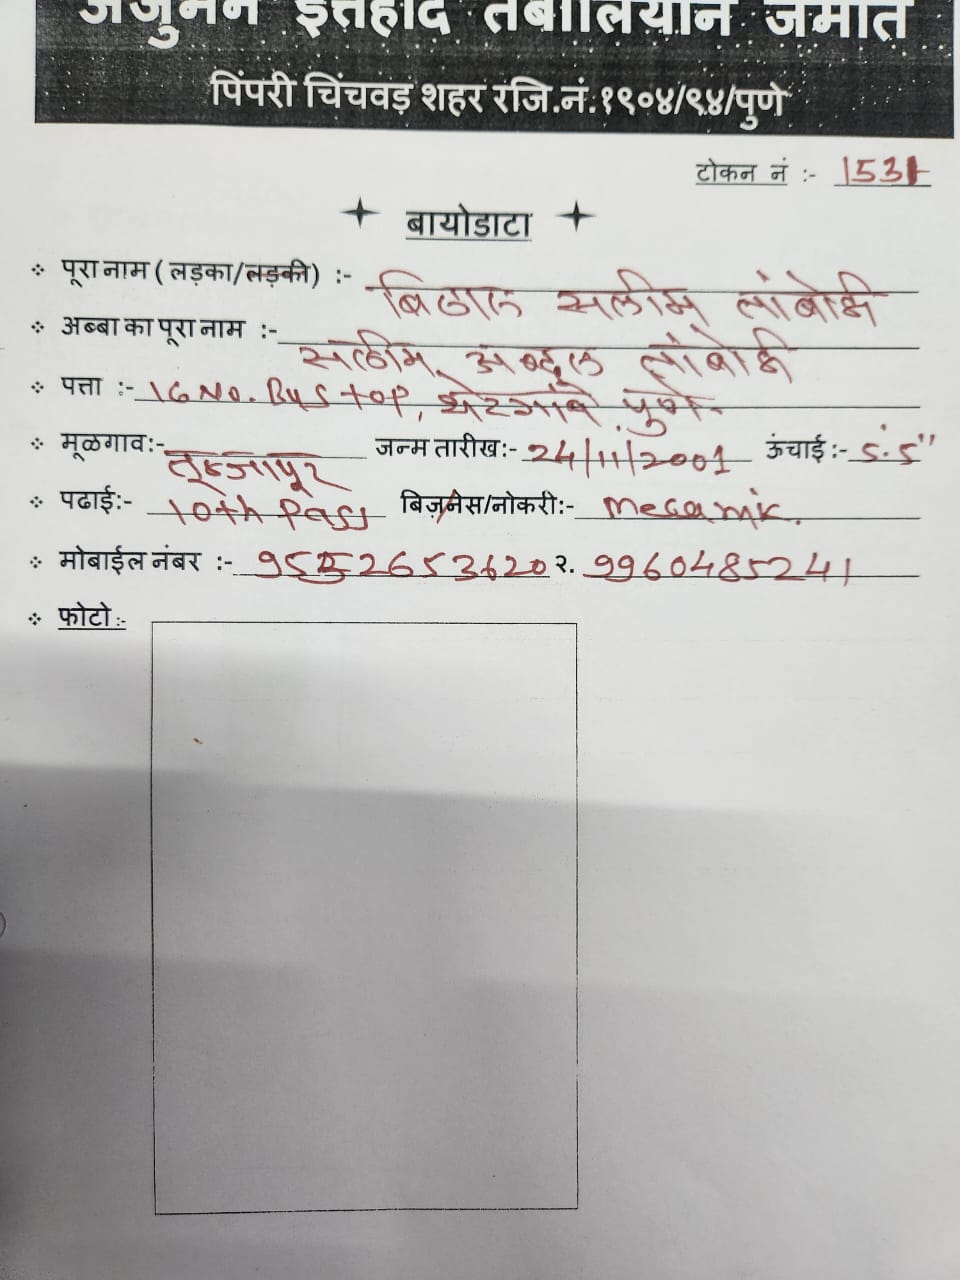 अंजुमन इत्तेहाद तंबोलियान जमात
पिंपरी चिंचवड शहर रजि.नं.१९०४/९४/पुणे
टोकन नं :- 1531
बायोडाटा
पूरा नाम ( लड़का/लड़की) :- बिलाल सलीम तांबोळी
अब्बा का पूरा नाम :- सलीम अब्दुल तांबोळी
पत्ता :- 16 No. Bus stop, थेरगांव पुणे.
मूळगाव:- तूळजापूर जन्म तारीख:- 24/11/2001 ऊंचाई:- 5.5"
पढाई:- 10th Pass बिज़नेस/नोकरी:- mecanik.
मोबाईल नंबर :- 9552653620 २. 9960485241
फोटो:-